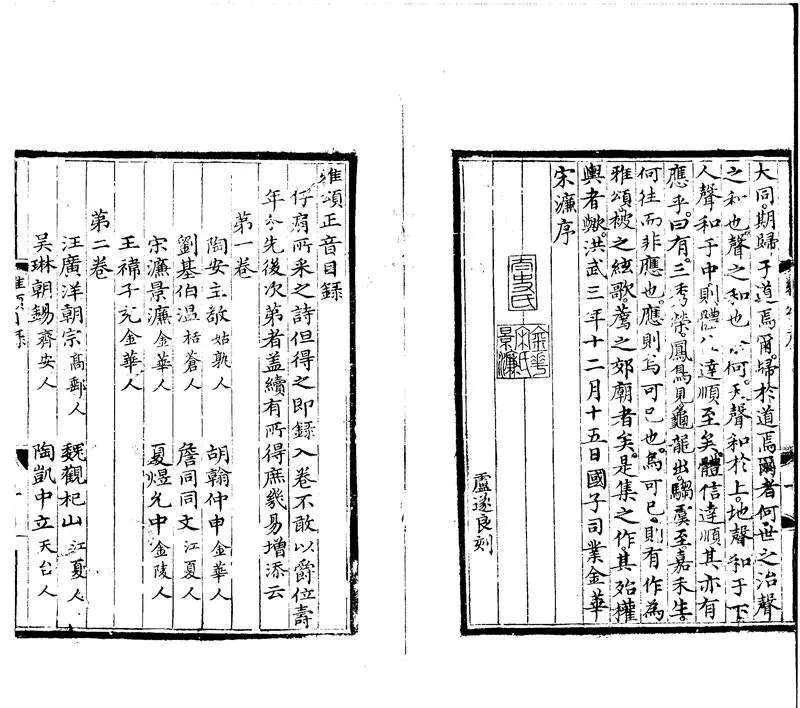 大同期歸于道焉爾歸於道焉爾者何世之治聲
之和也聲之和也者何天聲和於上地聲和于下
人聲和于中則體信達順至矣體信達順其亦有
應乎曰有三秀榮鳳鳥見龜龍出騶虞至嘉禾生
何往而非應也應則焉可已也焉可已則有作為
雅頌被之絃歌薦之郊廟者矣是集之作其殆權
輿者歟洪武三年十二月十五日國子司業金華
宋濂序
太史氏
金華宋氏景濂
盧遂良刻
雅頌正音目録
仔肩所采之詩但得之即録入卷不敢以爵位壽
年分先後次第者盖續有所得庶幾易增添云
第一卷
陶安主敬姑孰人 胡翰仲申金華人
劉基伯温栝蒼人 詹同同文江夏人
宋濂景濂金華人 夏煜允中金陵人
王禕子充金華人
第二卷
汪廣洋朝宗高郵人 魏觀杞山江夏人
吴琳朝錫齊安人 陶凱中立天台人